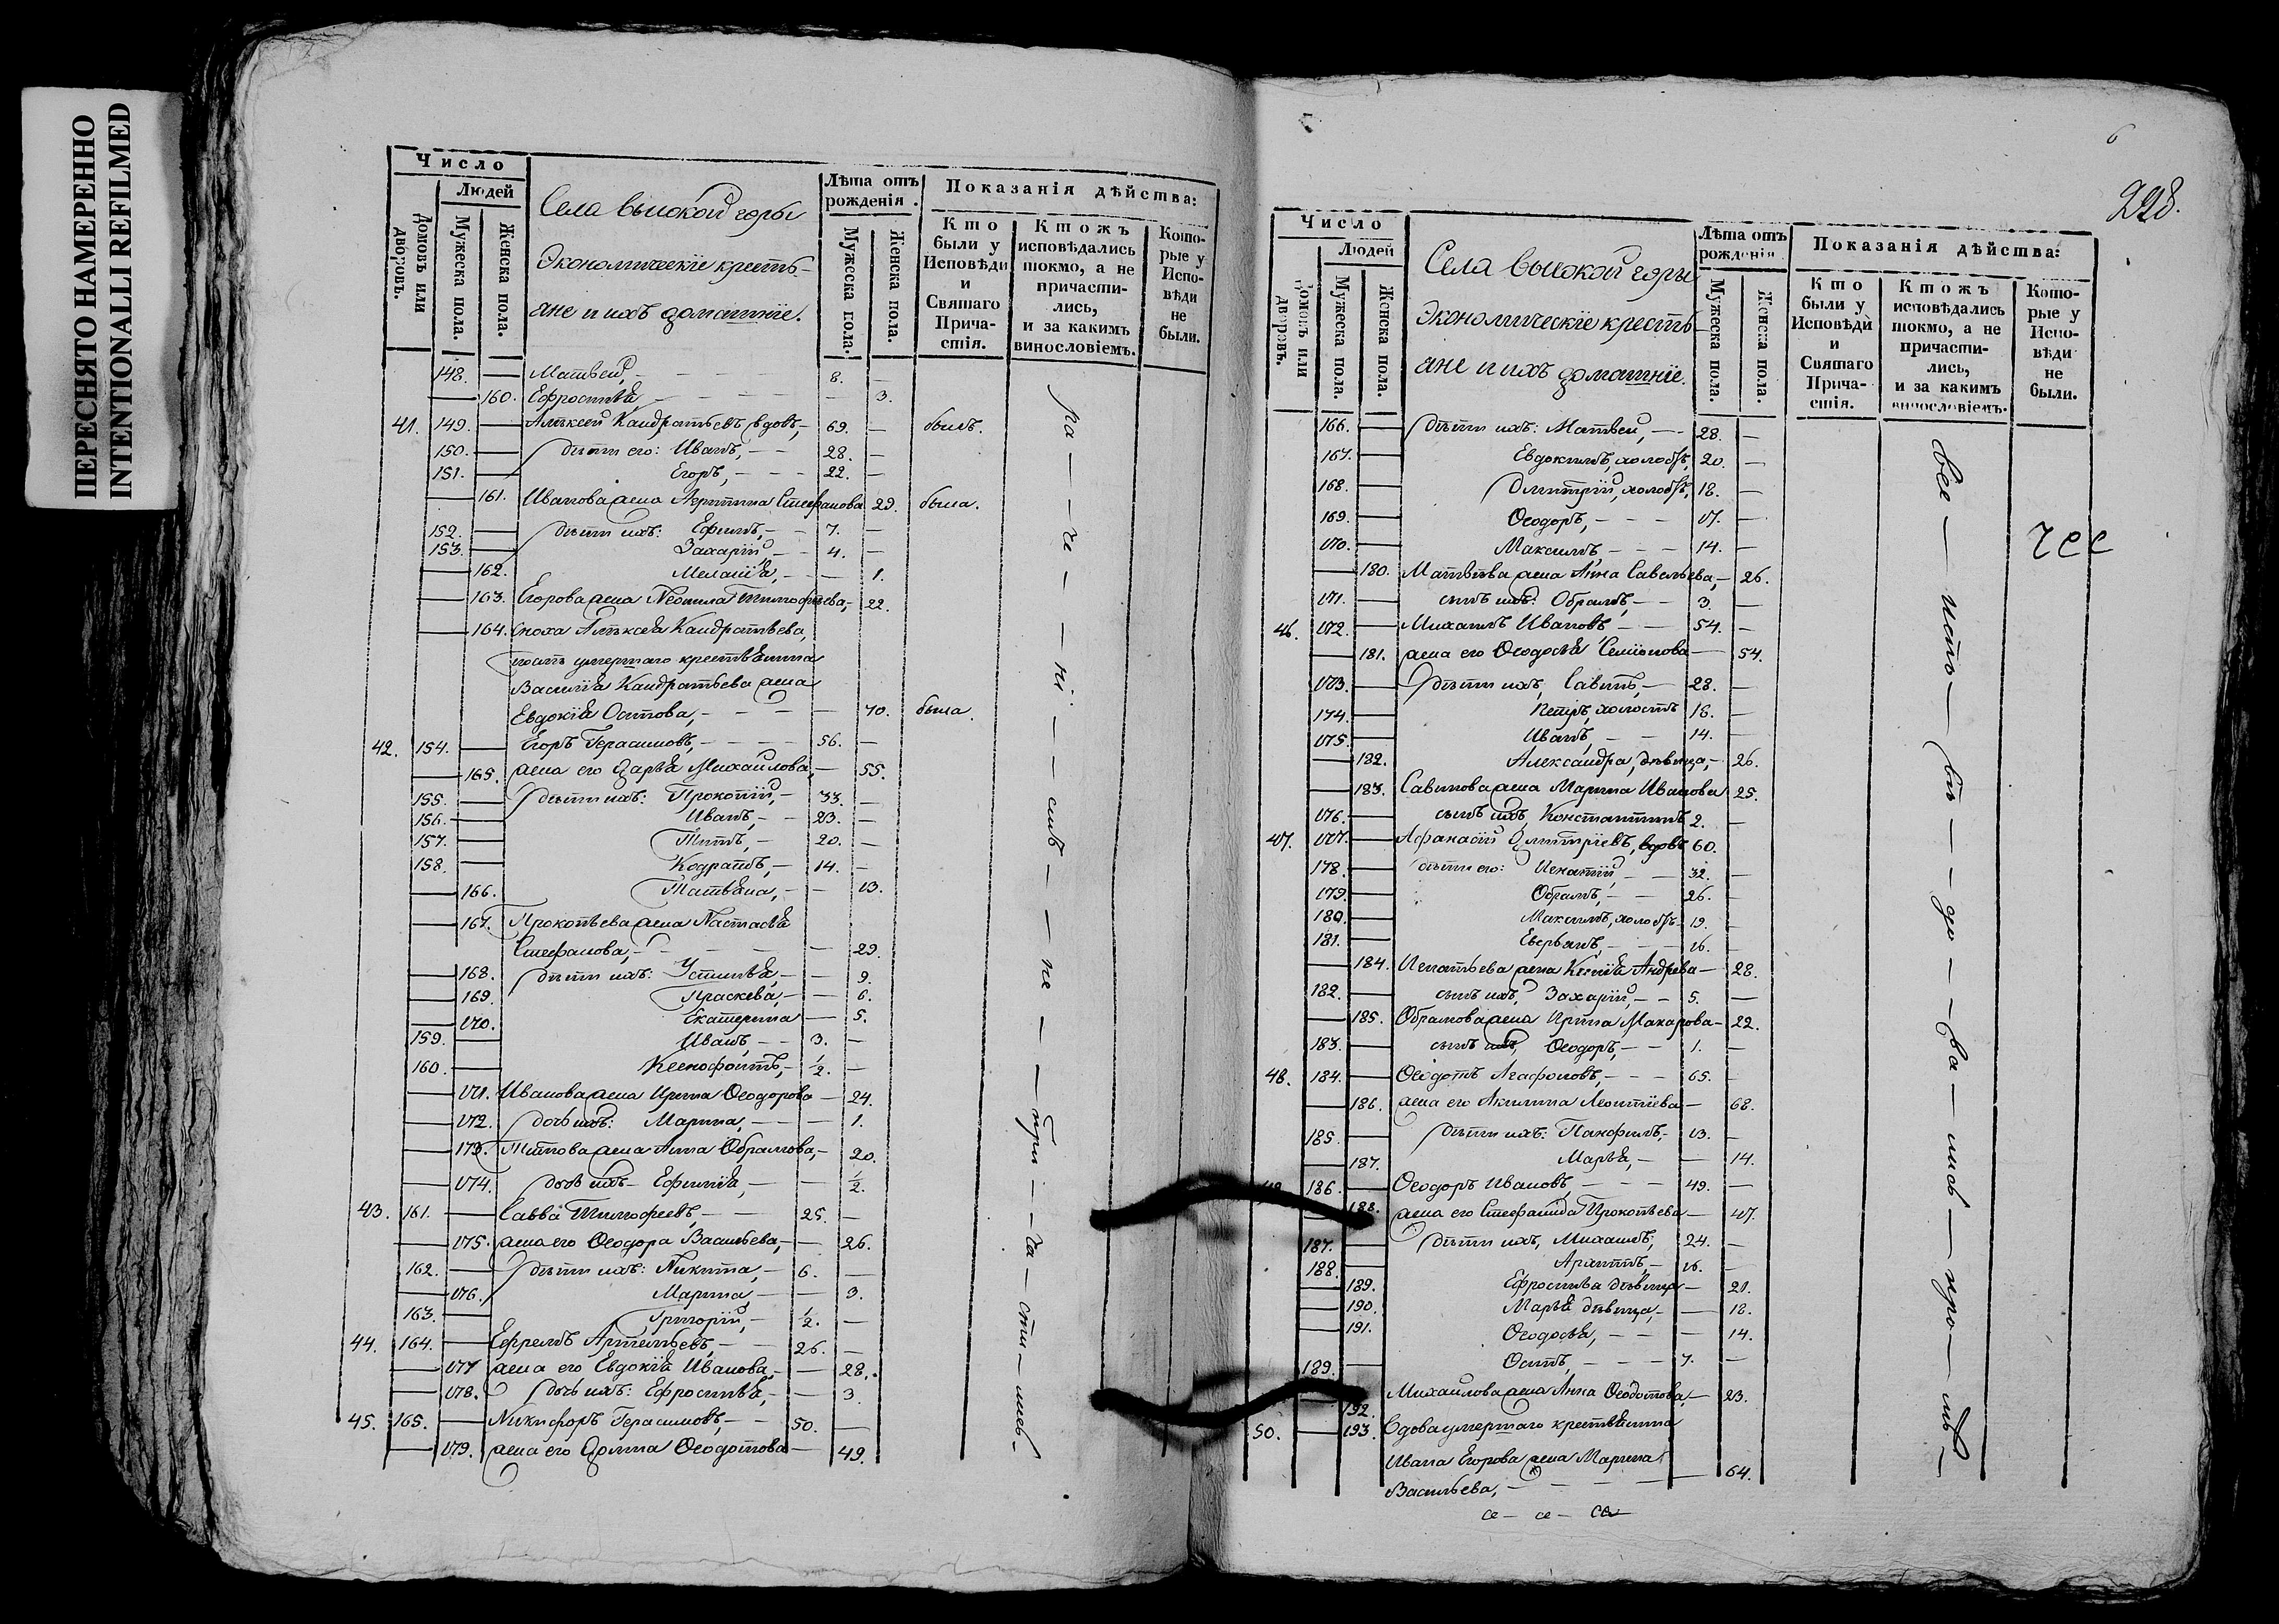 ПЕРЕСНЯТО НАМЕРЕННО
INTENTIONALLI REFILMED
Число
Людей
Домовъ или дворовъ.
Мужеска пола.
Женска пола.
Села высокой горы
Экономическіе кресть-
яне и ихъ домашніе.
Лѣта отъ рожденія.
Мужеска пола.
Женска пола.
Показанія дѣйства:
Кто были у Исповѣди и Святаго Прича-стія.
Ктожъ исповѣдались токмо, а не причасти-лись, и за какимъ винословіемъ.
Кото-рые у Испо-вѣди не были.
148. Матвей, 8.
160. Ефросинья 3.
41. 149. Алѣксей Кандратьевъ вдовъ, 69. былъ.
150. дѣти его: Иванъ, 28.
151. Егоръ, 22.
161. Иванова жена Стефанова 29. была.
152. дѣти ихъ: Ефимъ, 7.
153. Захарій, 4.
162. Меланія, 1.
163. Егорова жена Неонила Тимофѣева, 22.
164. сноха Алѣксея Кандратьева,
умершаго крестьянина
Василія Кандратьева жена
Евдокія Осипова, 70. была.
42. 154. Егоръ Герасимовъ, 56.
165. жена его Дарья Михайлова, 55.
155. дѣти ихъ: Прокопій, 33.
156. Иванъ, 23.
157. Титъ, 20.
158. Кодратъ, 14.
166. Татьяна, 13.
167. Прокопьева жена Настасья
Стефанова, 29.
168. дѣти ихъ: Устинья, 9.
169. Праскева, 6.
170. Екатерина 5.
159. Иванъ, 3.
160. Ксенофонтъ, 1/2.
171. Иванова жена Ирина Ѳеодорова 24.
172. дочь ихъ: Марина, 1.
173. Титова жена Анна Обрамова, 20.
174. дочь ихъ Ефимія, 1/2.
43. 161. Савва Тимофеевъ, 25.
175. жена его Ѳеодора Васильева, 26.
162. дѣти ихъ: Никита, 6.
176. Марина, 3.
163. Григорій, 1/2.
44. 164. Ефремъ Артемьевъ, 26.
177 жена его Евдокія Иванова, 28.
178. дочь ихъ: Ефросинья, 3
45. 165. Никифоръ Герасимовъ, 50.
179. жена его Домна Ѳеодотова 49.
6
228.
Число
Людей
Домовъ или дворовъ.
Мужеска пола.
Женска пола.
Села высокой горы
Экономическіе кресть-
яне и ихъ домашніе.
Лѣта отъ рожденія
Мужеска пола.
Женска пола.
Показанія дѣйства:
Кто были у Исповѣди и Святаго Прича-стія.
Ктожъ исповѣдались токмо, а не причасти-лись, и за какимъ винословіемъ.
Кото-рые у Испо-вѣди не были.
166. дѣти ихъ: Матвей, 28.
167. Евдокимъ, холостъ, 20.
168. Дмитрій, холостъ, 18.
169. Ѳеодоръ, 17.
170. Максимъ, 14.
180. Матвѣева жена Анна Савельева, 26.
171. сынъ ихъ: Обрамъ, 3.
46. 172. Михаилъ Ивановъ 54.
181. жена его Ѳеодосья Семіонова 54.
173. дѣти ихъ, Савинъ, 28.
174. Петръ, холостъ 18.
175. Иванъ, 14.
182. Александра, дѣвица, 26.
183. Савинова жена Марина Иванова 25.
176. сынъ ихъ, Константинъ 2.
47. 177. Афанасій Дмитріевъ, вдовъ 60.
178. дѣти его: Игнатій, 32.
179. Обрамъ, 26.
180. Максимъ, холостъ 19.
181. 16.
184. Игнатьева жена Ксенія Андрева 28.
182. сынъ ихъ, Захарій, 5.
185. Обрамова жена Ирина Макарова 22.
183. сынъ ихъ, Ѳеодоръ, 1.
48. 184. Ѳеодотъ Агафоновъ, 65.
186. жена его Акилина Леонтіева 68.
185. дѣти ихъ: 13.
187. Марья, 14.
186. Ѳеодоръ Ивановъ, 49.
188. жена его Стефанида Прокопьева 47.
187. дѣти ихъ, Михаилъ, 24.
188. 16.
189. Ефросинья дѣвица 21.
190. Марья дѣвица, 18.
191. Ѳеодосья, 14.
189. Осипъ, 7.
192. Михайлова жена Анна Ѳеодотова, 23.
50. 193. Вдова умершаго крестьянина
Ивана Егорова жена Марина
Васильева, 64.